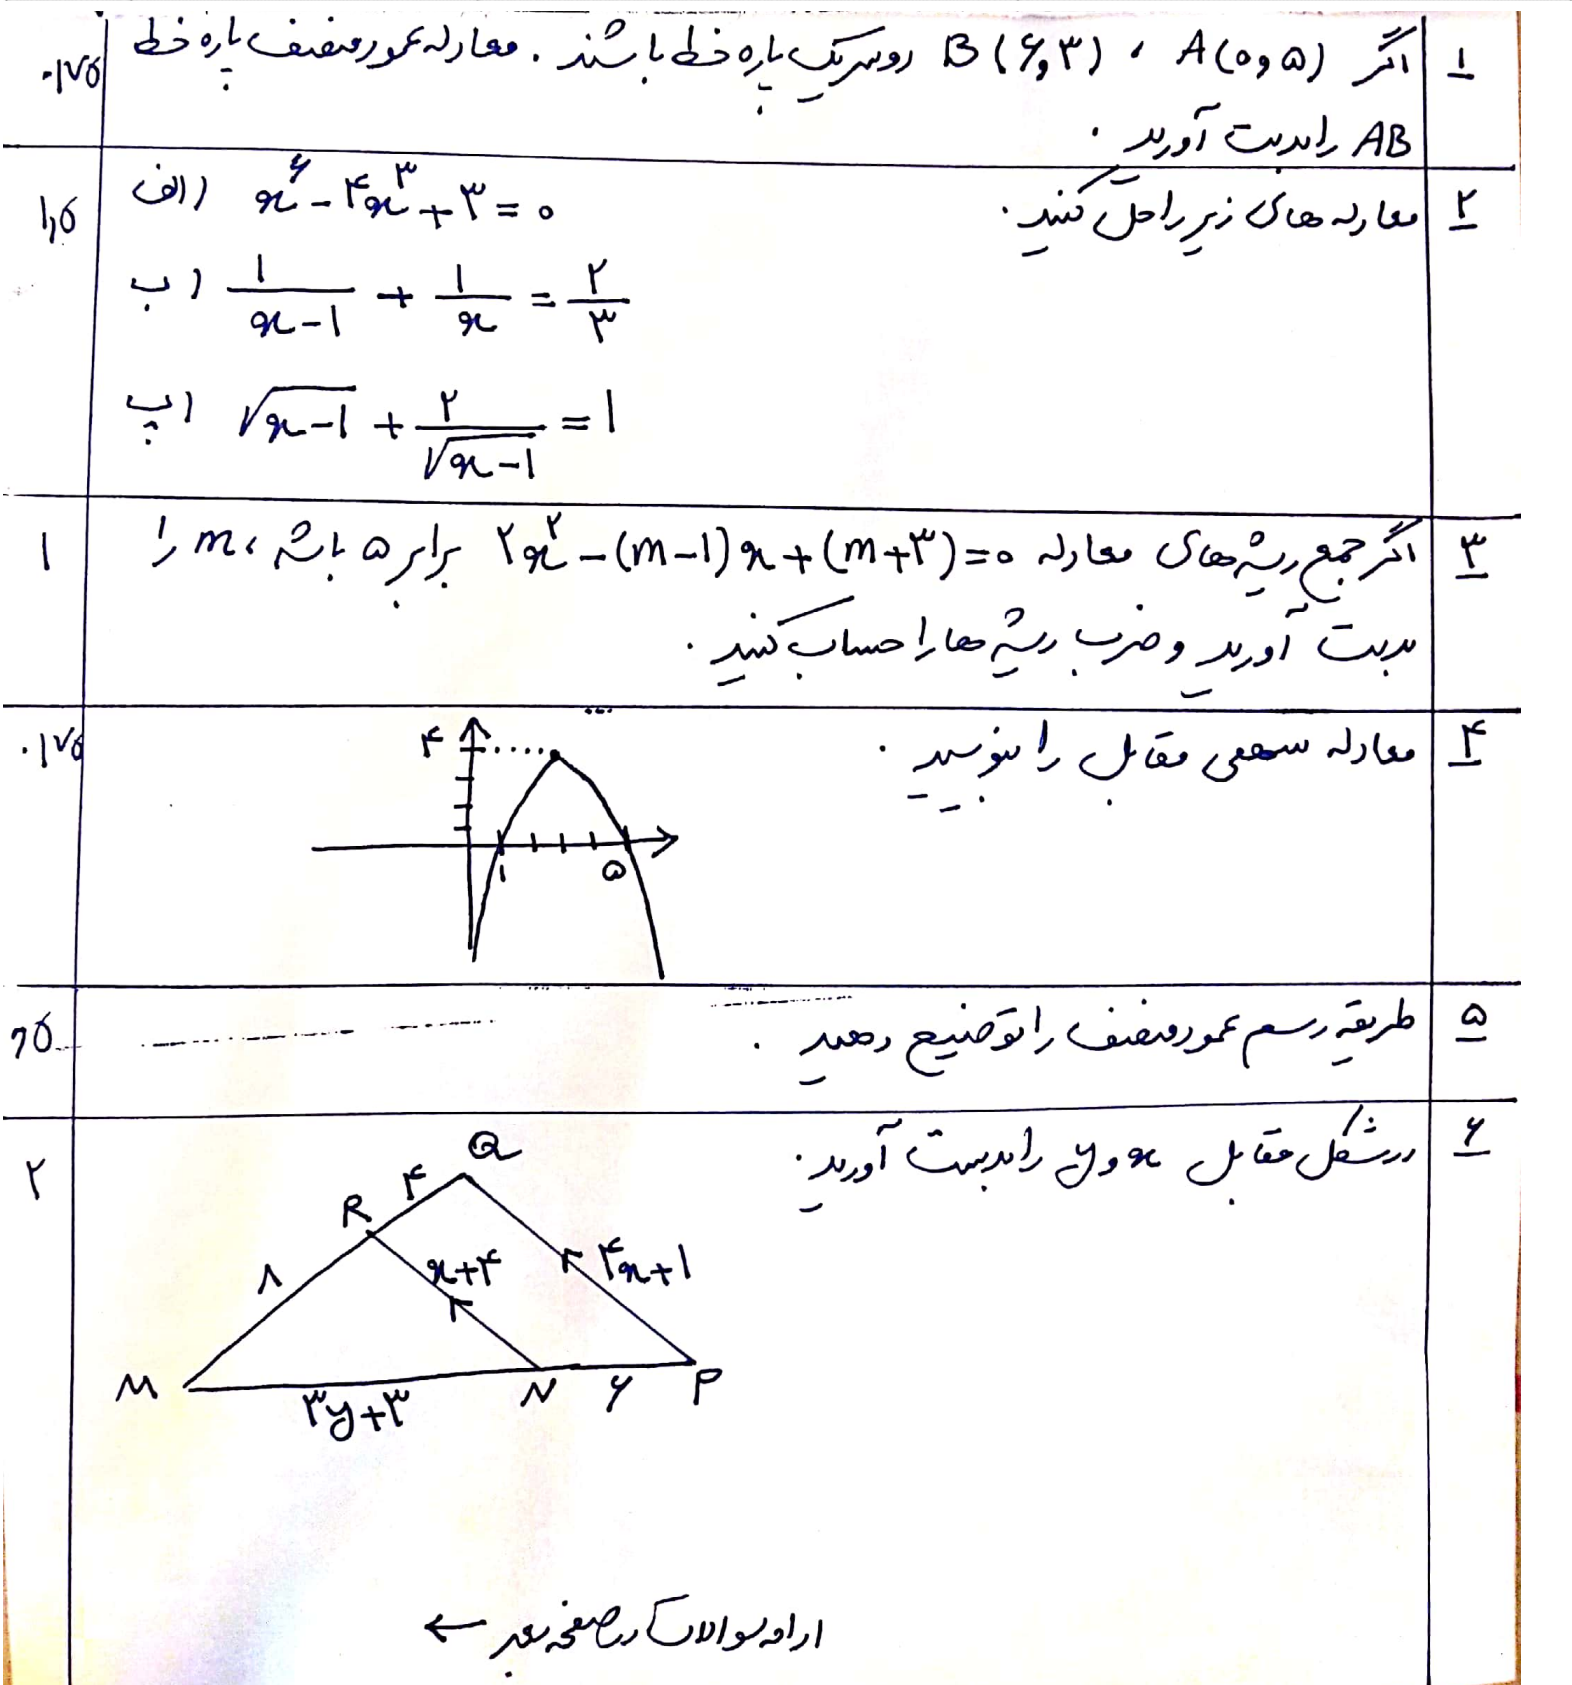 ۱ اگر A(۰و۵) ، B(۶و۳) دو سر یک پاره خط باشند . معادله عمود منصف پاره خط ۰/۷۵
AB را بدست آورید .
۲ معادله های زیر را حل کنید . ۱,۵
الف) x^۶ - ۴x^۳ + ۳ = ۰
ب) ۱/(x-۱) + ۱/x = ۲/۳
پ) √(x-۱) + ۲/√(x-۱) = ۱
۳ اگر جمع ریشه های معادله ۲x^۲ - (m-۱)x + (m+۳) = ۰ برابر ۵ باشد، m را ۱
بدست آورید و ضرب ریشه ها را حساب کنید .
۴ معادله سهمی مقابل را بنویسید . ۰/۷۵
۴
۱ ۵
۵ طریقه رسم عمود منصف را توضیح دهید . ,۵
۶ در شکل مقابل x و y را بدست آورید . ۲
Q
۴
R
x+۴ ۴x+۱
۸
M N ۶ P
۳y+۳
ادامه سوالات در صفحه بعد ←